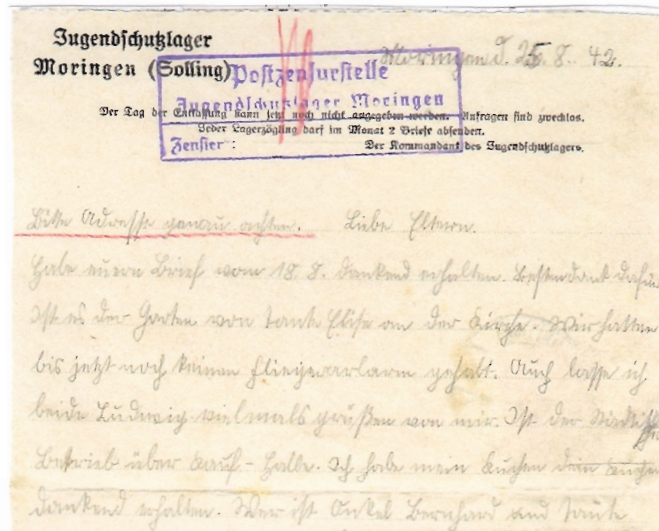 Jugendschutzlager
Moringen (Solling)
Postzensurstelle
Jugendschutzlager Moringen
Zensier:
Moringen d. 25. 8. 42.
Der Tag der Entlassung kann jetzt noch nicht angegeben werden. Anfragen sind zwecklos.
Jeder Lagerzögling darf im Monat 2 Briefe absenden.
Der Kommandant des Jugendschutzlagers.
Bitte Adresse genau achten. Liebe Eltern.
Habe euern Brief vom 18. 8. dankend erhalten. Bestendank dafür
Ist es der Garten von Tante Elise an der Kirche. Wir hatten
bis jetzt noch keinen Fliegearlarm gehabt. Auch lasse ich
beide Ludwig vielmals grüßen von mir. Ist der
Betrieb über Kauf-Halle. Ich habe mein Kuchen
dankend erhalten. Wer ist Onkel Bernhard und Tante